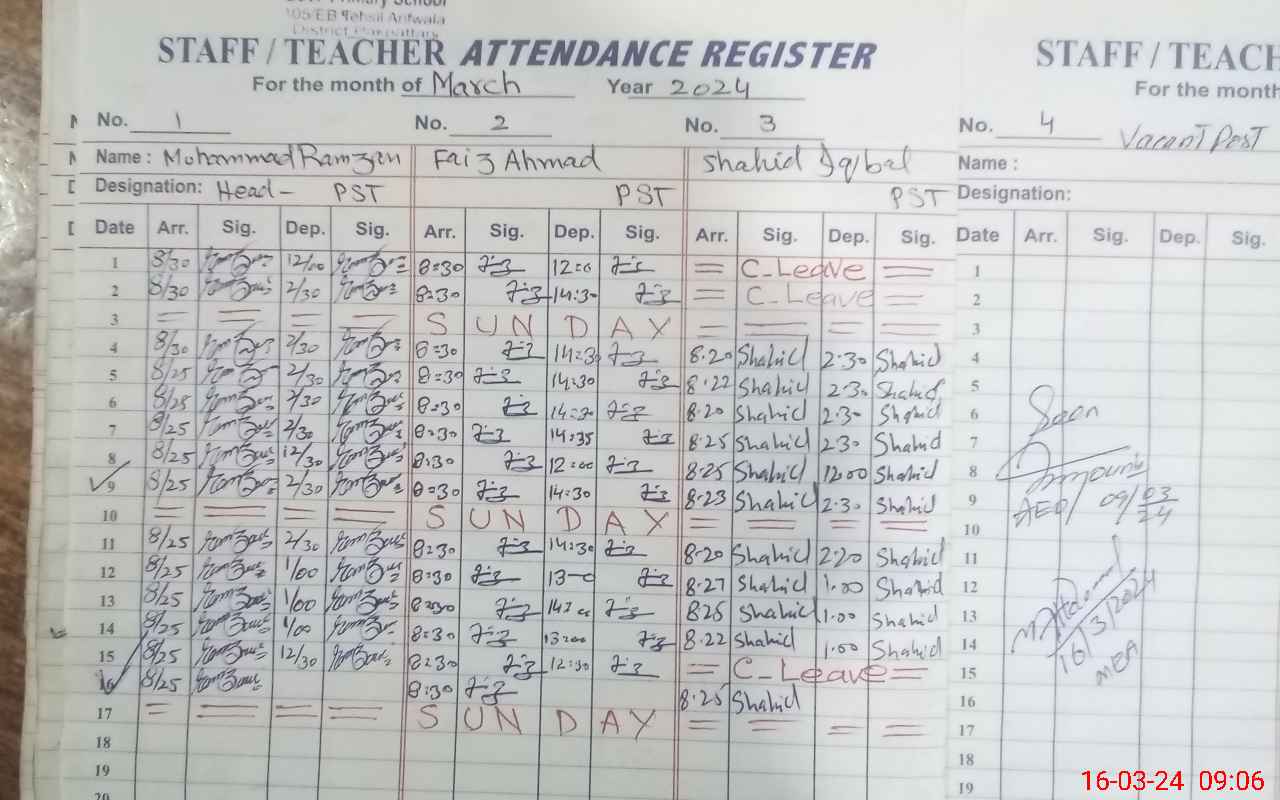 105/EB Tehsil Arifwala
STAFF / TEACHER ATTENDANCE REGISTER
For the month of March Year 2024
No. 1 No. 2 No. 3
Name : Mohammad Ramzan Faiz Ahmad Shahid Iqbal
Designation: Head - PST PST PST
Date Arr. Sig. Dep. Sig. Arr. Sig. Dep. Sig. Arr. Sig. Dep. Sig.
1 8/30 12/00 8=30 12=0 = C_Leave =
2 8/30 2/30 8=30 14=30 = C_Leave =
3 = = = = S U N D A Y = = = =
4 8/30 2/30 8=30 14=30 8.20 Shahid 2.30 Shahid
5 8/25 2/30 8=30 14=30 8.22 Shahid 2.30 Shahid
6 8/25 2/30 8=30 8.20 Shahid 2.30 Shahid
7 8/25 2/30 8=30 14=35 8.25 Shahid 2.30 Shahid
8 8/25 12/30 8=30 12=00 8.25 Shahid 12.00 Shahid
9 8/25 2/30 8=30 14=30 8.23 Shahid 2.30 Shahid
10 = = = = S U N D A Y = = = =
11 8/25 2/30 8=30 14=30 8.20 Shahid 2.20 Shahid
12 8/25 1/00 8=30 8.27 Shahid 1.00 Shahid
13 8/25 1/00 8=30 Shahid 1.00 Shahid
14 8/25 1/00 8=30 13=00 8.22 Shahid 1.00 Shahid
15 8/25 12/30 8=30 12=30 = C_Leave =
16 8/25 8=30 8.25 Shahid
17 = = = = S U N D A Y = = = =
18
19
20
STAFF / TEACH
For the month
No. 4 Vacant Post
Name :
Designation:
Date Arr. Sig. Dep. Sig.
1
2
3
4
5
6 Seen
7
8
9 AEO/ 09/03/24
10
11
12
13
14 16/3/2024
15 MEA
16
17
18
19
16-03-24 09:06